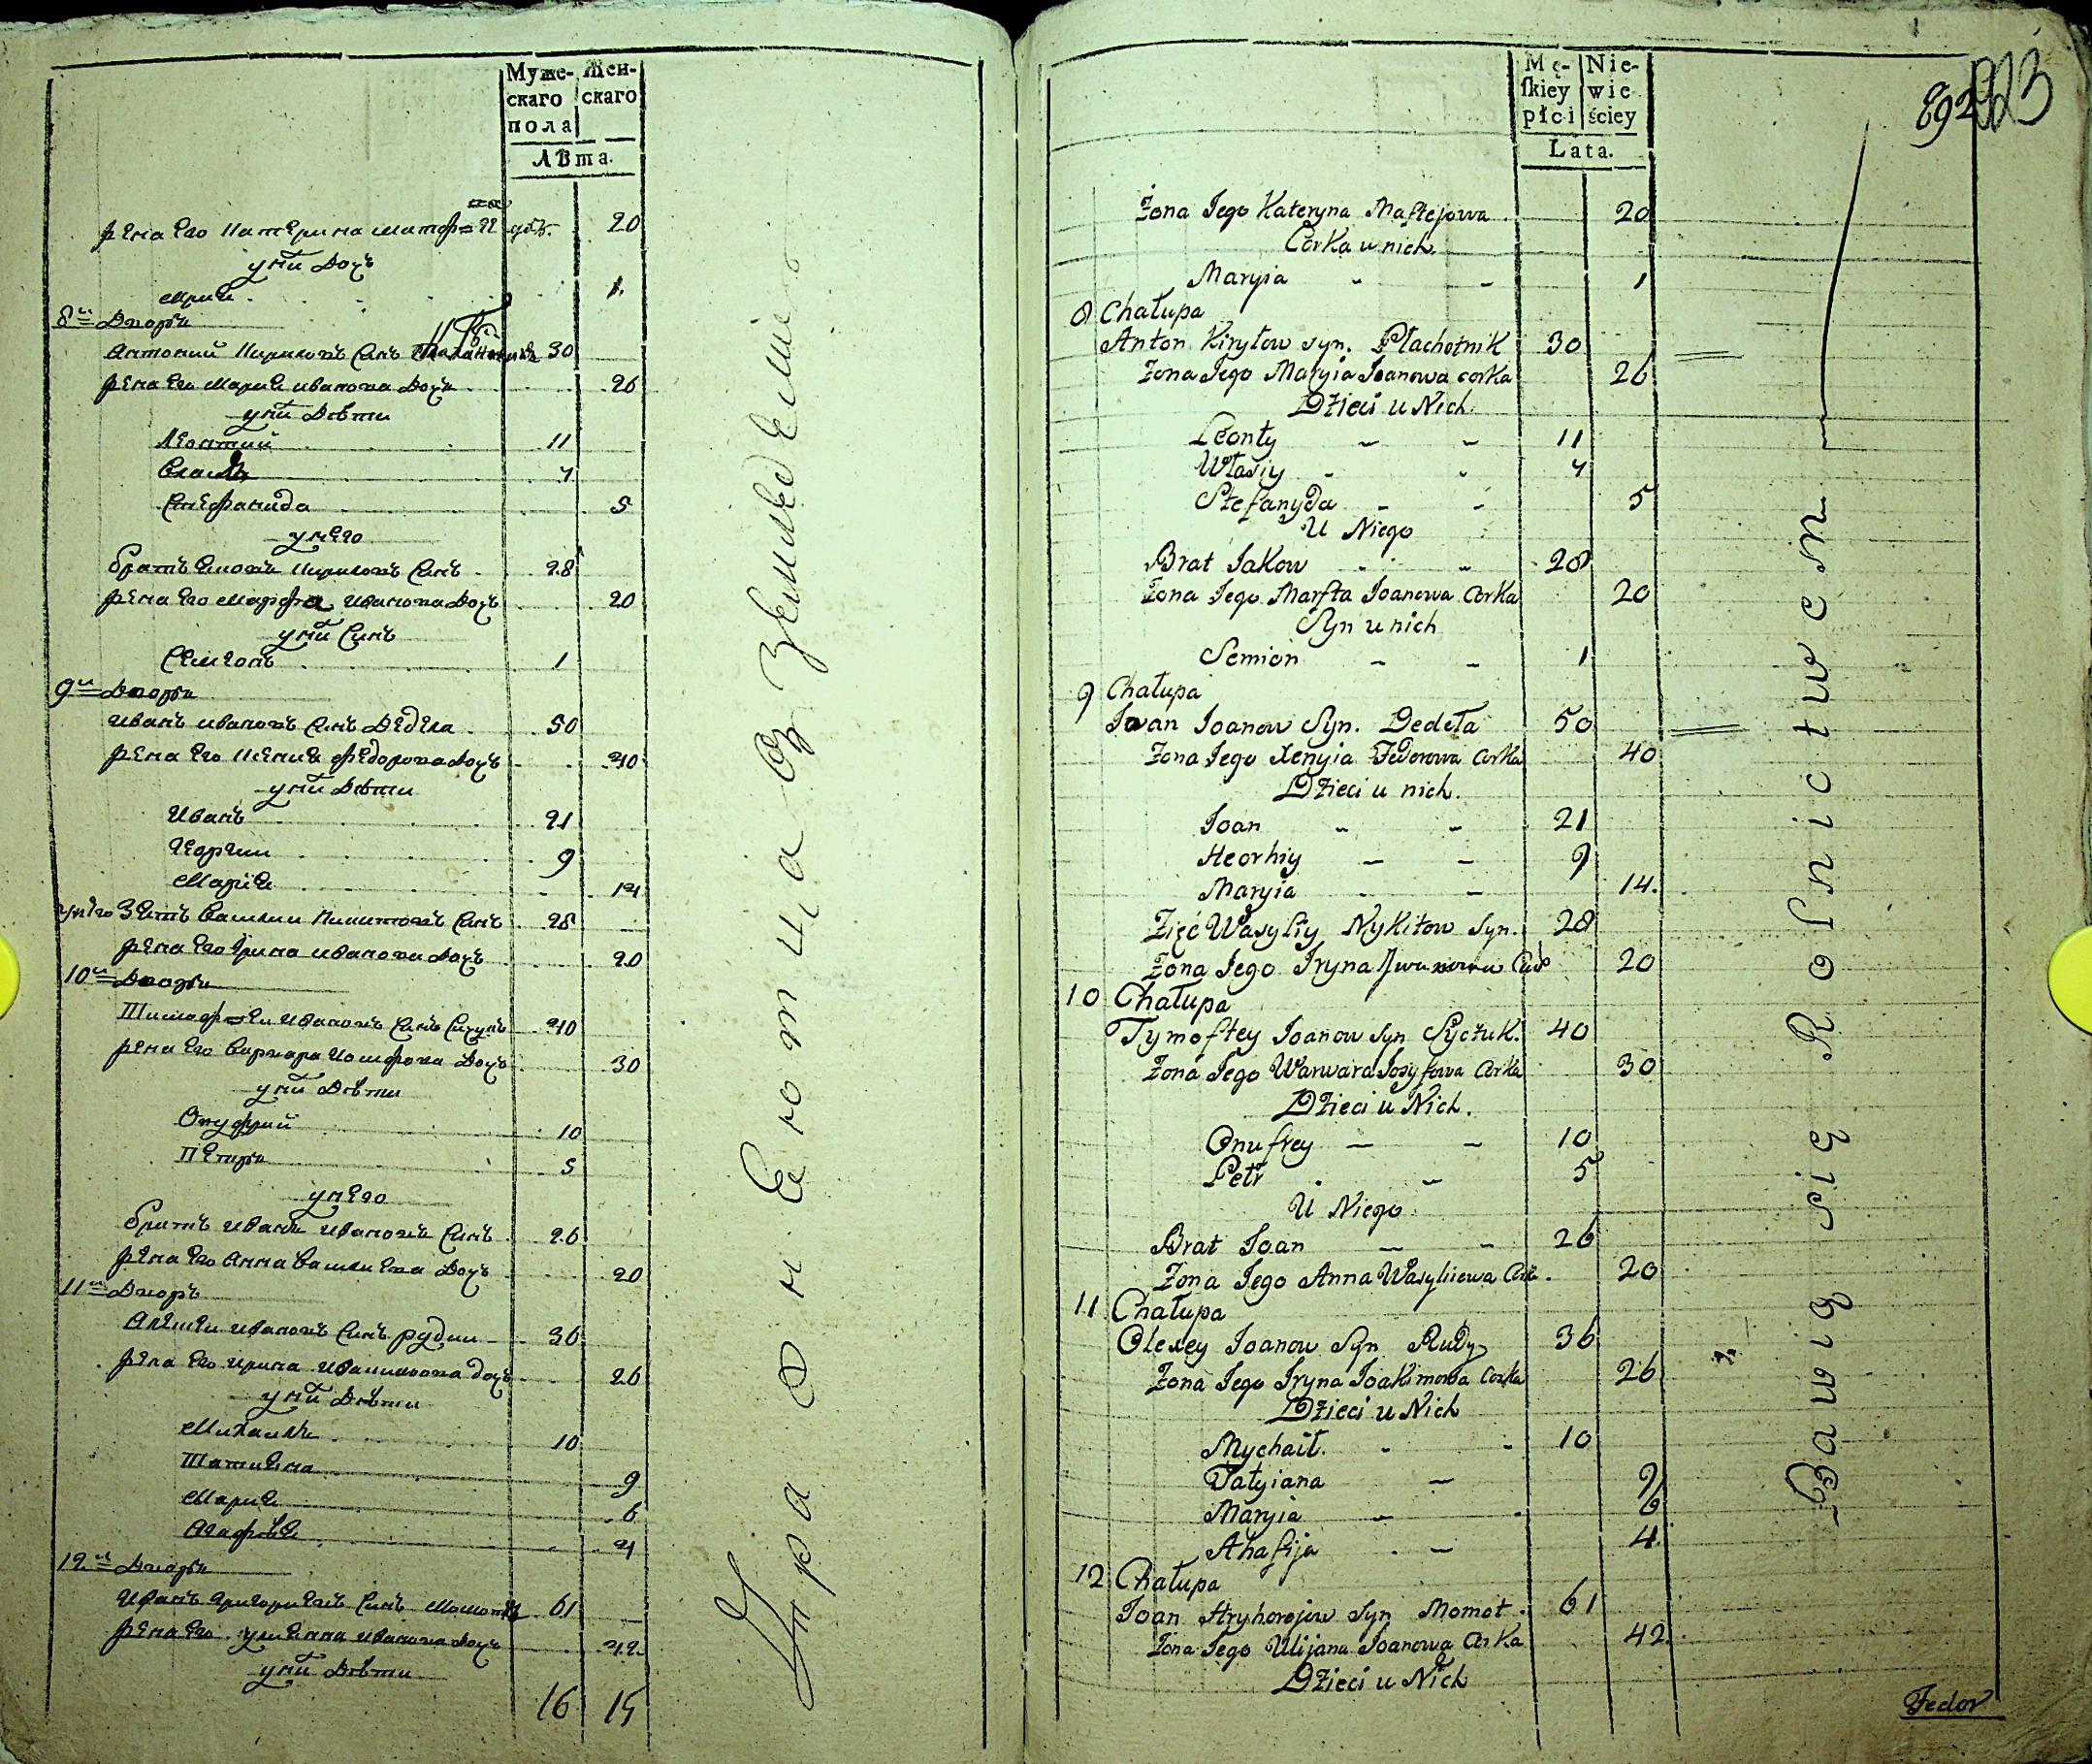 Муже- Жен-
скаго скаго
пола
Лѣта.
жена его Катерина Матф=е 20
у них дочь
Мария 1
8й= Дворъ
Антоний Кирилов синъ 30
жена его Мария Иванова дочь 26
у них дѣти
Леонтий 11
Власий 4
Стефанида 5
у него
братъ Яковъ Кирилов синъ 28
жена его Марфа Иванова дочь 20
у них синъ
Семионъ 1
9й= Дворъ
Иванъ Ивановъ синъ Дедела 50
жена его Ксения Федорова дочь 40
у них дѣти
Иванъ 21
Георгии 9
Мария 14
у него зять Василии Никитовъ синъ 28
жена его Ирина Иванова дочь 20
10й= Дворъ
Тимоф=еи Ивановъ синъ Сичукъ 40
жена его Варвара Иосифова дочь 30
у них дѣти
Онуфрий 10
Петръ 5
у него
братъ Иванъ Ивановъ синъ 26
жена его Анна Василиева дочь 20
11й= Дворъ
Алексеи Ивановъ синъ Рудии 36
жена его Ирина Иоакимова дочь 26
у них дѣти
Михаилъ 10
Татияна 9
Мария 6
Агафѣя 4
12й= Дворъ
Иванъ Григориевъ синъ Момотъ 61
жена его Улиянна Иванова дочь 42
у них дѣти
16 15
Упражняются в земледелии
892
Mę- Nie-
ſkiey wie
płci ściey
Lata.
Żona Jego Kateryna Maftejowa 20
Corka u nich
Maryia 1
8 Chałupa
Anton Kiryłow syn. Płachotnik 30
Żona Jego Maryia Joanowa corka 26
Dzieci u Nich
Leonty 11
Własiy 4
Stefanyda 5
U Niego
Brat Jakow 28
Żona Jego Marfta Joanowa Corka 20
Syn u nich
Semion 1
9 Chałupa
Jwan Joanow Syn. Dedeła 50
Żona Jego Xenyia Fedorowa Corka 40
Dzieci u nich.
Joan 21
Heorhiy 9
Maryia 14.
Zięć Wasyliy Nykitow Syn. 28
Żona Jego Iryna Jwanowa Cor 20
10 Chałupa
Tymoftey Joanow Syn Syczuk. 40
Żona Jego Warwara Josyfowa Corka 30
Dzieci u Nich.
Onufrey 10
Petr 5
U Niego
Brat Joan 26
Żona Jego Anna Wasyliewa Cork. 20
11 Chałupa
Olexey Joanow Syn Rudy 36
Żona Jego Iryna Joakimowa Corka 26
Dzieci u Nich
Mychaił. 10
Tatyiana 9
Maryia 6
Ahafija 4.
12 Chałupa
Joan Hryhorejow Syn Momot. 61
Żona Jego Ulijana Joanowa Corka 42.
Dzieci u Nich
Bawią się Rolnictwem
Fedor